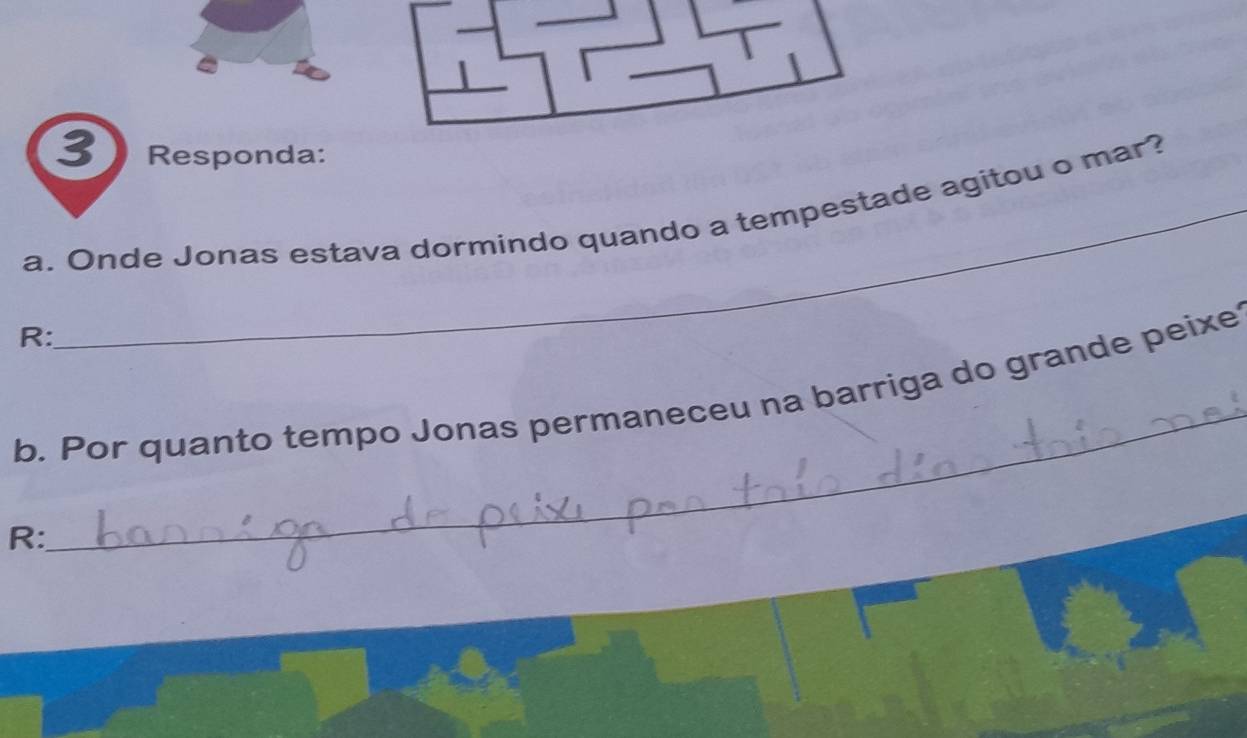 3 Responda:
a. Onde Jonas estava dormindo quando a tempestade agitou o mar?
R:
b. Por quanto tempo Jonas permaneceu na barriga do grande peixe?
R: barriga de peixe por trío día trio noi